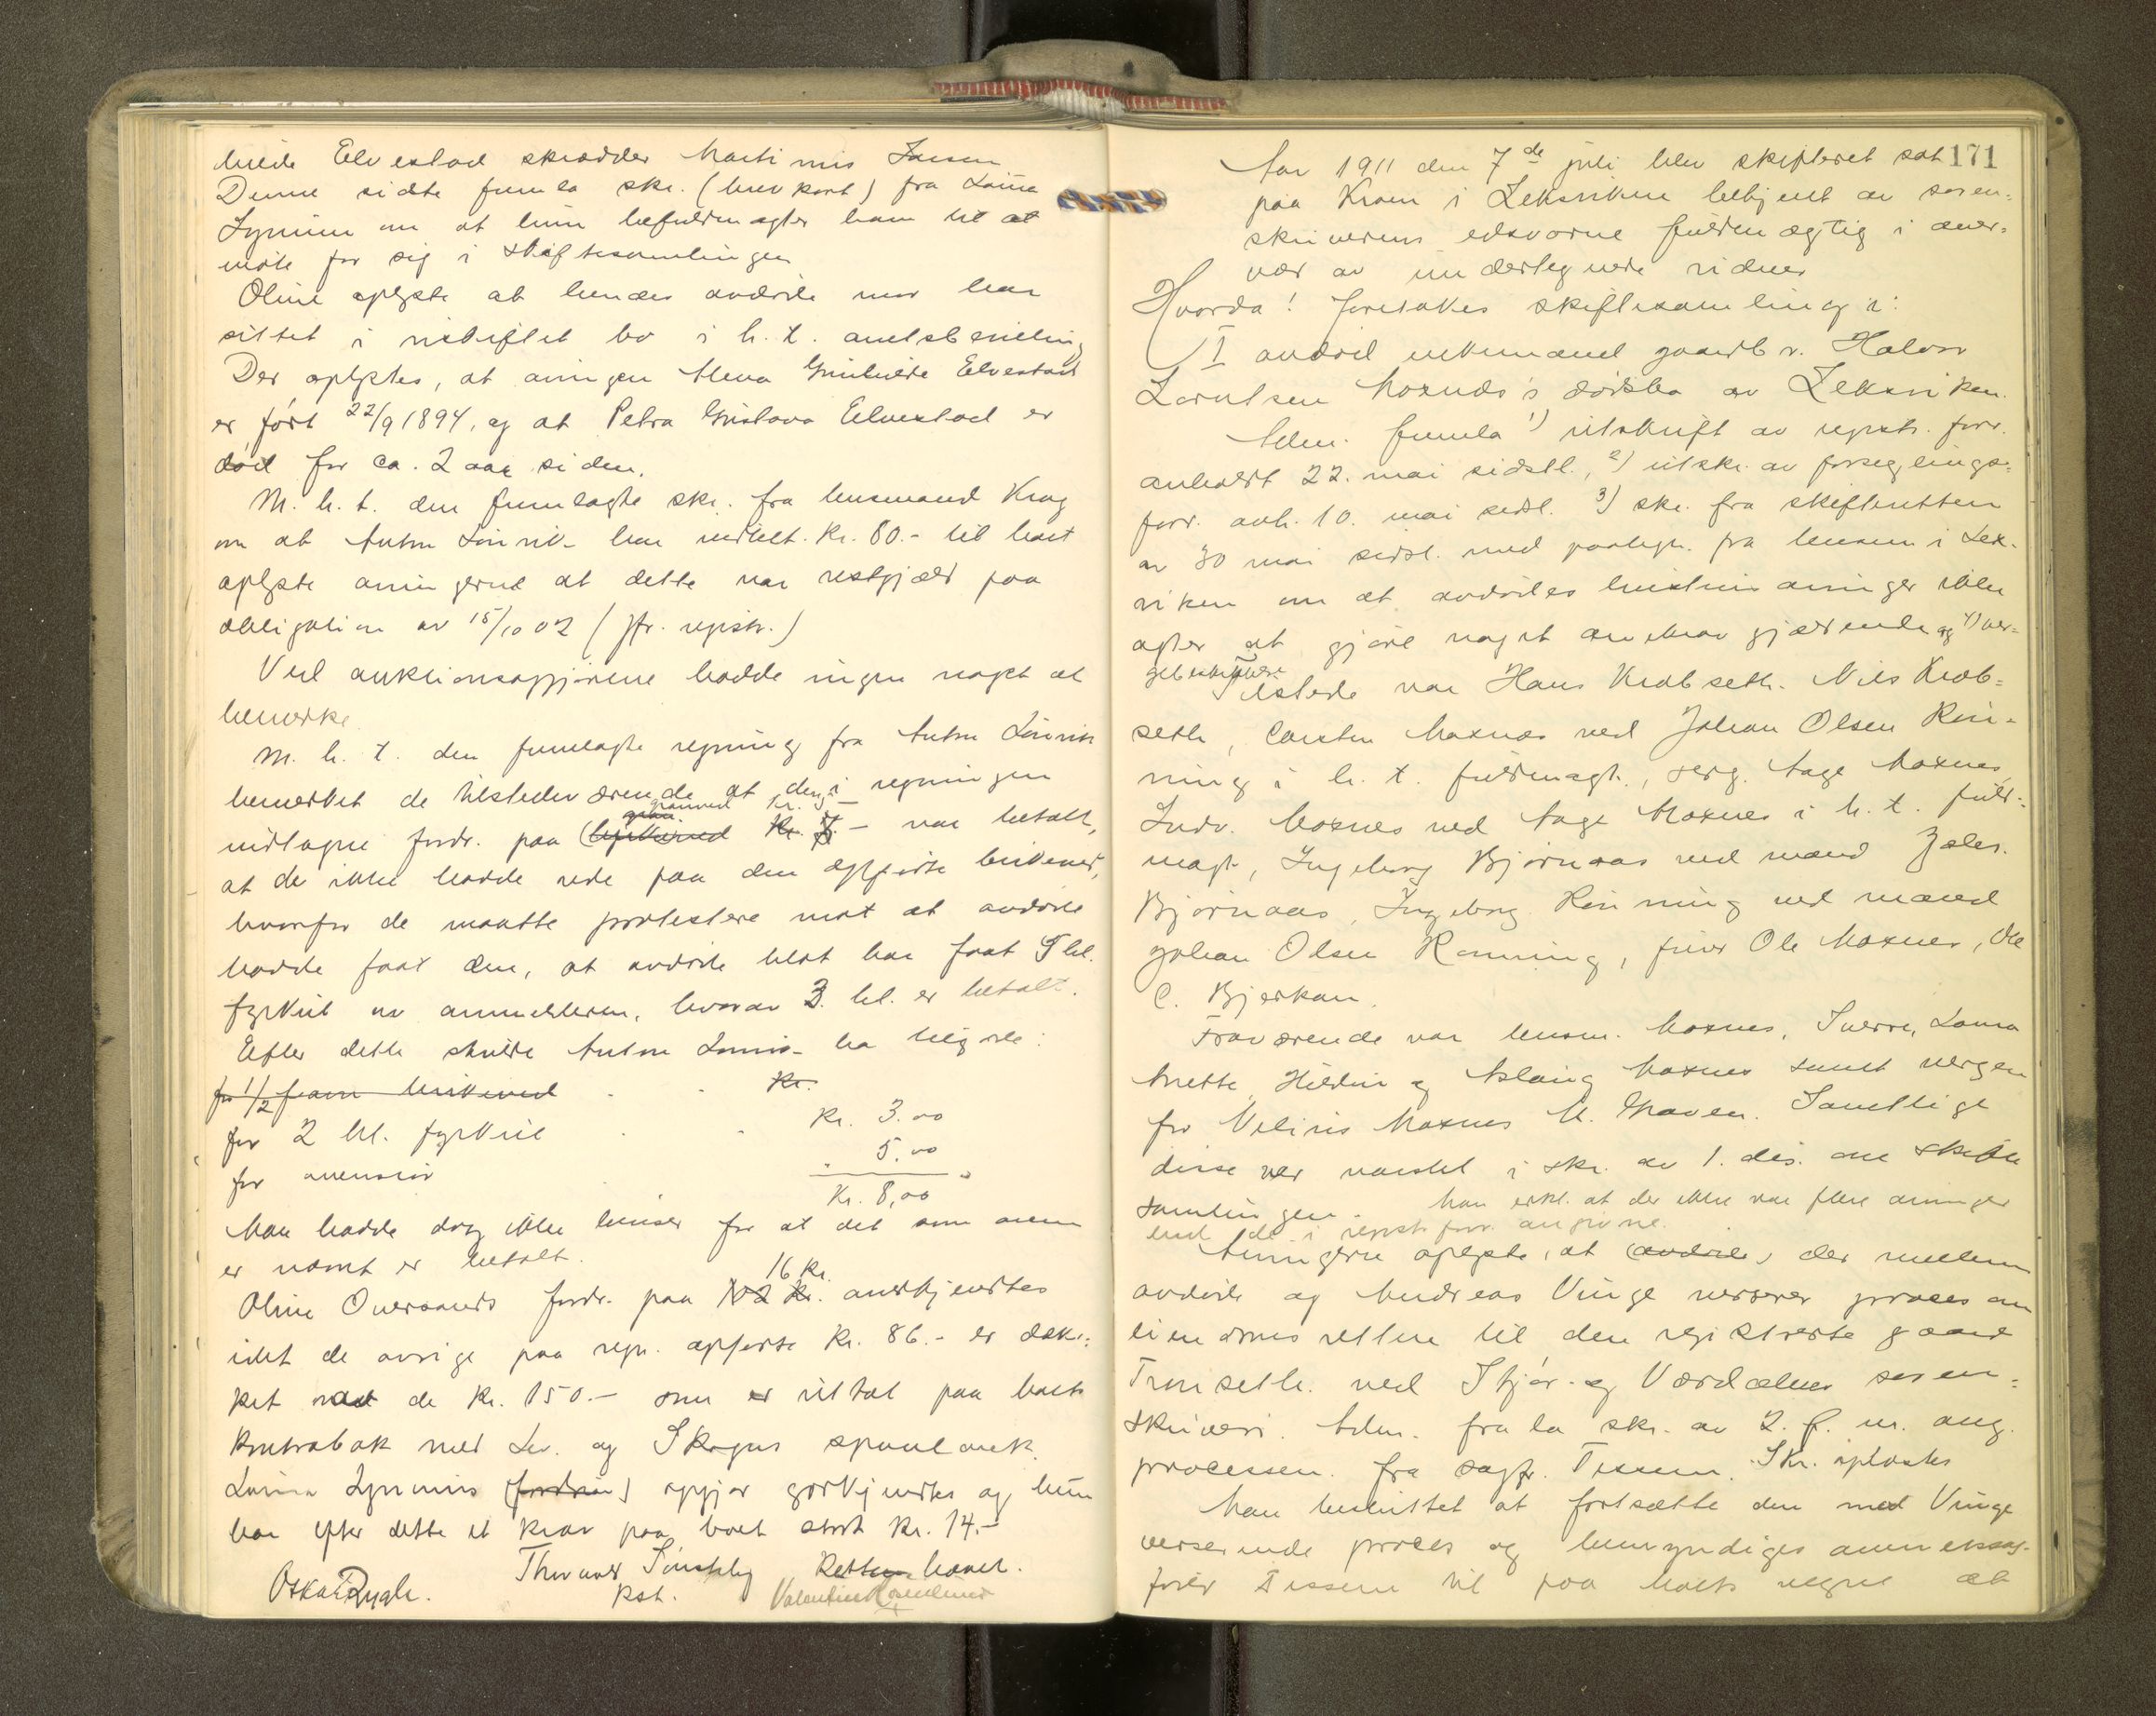 hilde Elvestad skrædder Martinus Larsen
Denne sidste fremla skr. (brevkort) fra Lovise
Lynum om at hun befuldmægter ham til at
møte for sig i skiftesamlingen
Oline oplyste at hendes avdøde mor har
sittet i uskiftet bo i h. t. amtsbevilling
Der oplystes, at arvingen Alma Gunhilde Elvestad
er født 22/9 1894, og at Petra Gustava Elvestad er
død for ca. 2 aar siden.
M. h. t. den fremlagte skr. fra lensmand Krog
om at Anton Lönvik har indbet. Kr. 80.- til boet
oplyste arvingerne at dette var restgjæld paa
obligation av 15/10 02 (jfr. registr.)
Ved auktionsopgjörene hadde ingen noget at
bemerke
M. h. t. den fremlagte regning fra Anton Lönvik
bemerket de tilstedeværende at den i regningen
granved Kr. 3
indtagne fordr. paa (bjerkeved Kr. 3.- var betalt,
at de ikke hadde rede paa den opførte birkeved,
hvorfor de maatte protestere mot at avdøde
hadde faat den, at avdøde blot har faat 5 hl.
fyrkul av anmelderen, hvorav 3 hl. er betalt.
Efter dette skulde Anton Lönvik ha tilgode:
for 1/2 favn birkeved - Kr.
for 2 hl. fyrkul - Kr. 3.00
for " 5.00
Kr. 8,00
Man hadde dog ikke beviser for at det som oven
er nævnt er betalt.
16 kr.
Oline Oversands fordr. paa 102 kr. anerkjendtes
idet de øvrige paa regn. opførte Kr. 86.- er dæk-
ket ved de Kr. 150.- som er uttat paa boets
kontrabok med Lev. og Skogns sparebank.
Lovise Lynums (fordrin) opgjør godkjendtes og hun
har efter dette et krav paa boet stort Kr. 14.-
Retten hævet.
Oskar Rygh. Thorvald
kst. Valentin
171
Aar 1911 den 7de juli blev skifteret sat
paa Kroen i Leksviken betjent av soren-
skriverens edsvorne fuldmægtig i over-
vær av undertegnede vidner
Hvorda! foretokes skiftesamling i:
I avdød enkemand gaardbr. Halvor
Larntsen Moxnes's dødsbo av Leksviken.
Adm. fremla 1) utskrift av registr. forr.
avholdt 22. mai sidstl., 2) utskr. av forseglings-
forr. avh. 10. mai sidstl. 3) skr. fra skifteretten
av 30 mai sidstl. med paategn. fra lensm. i Lex-
viken om at avdødes hustrus arvinger ikke
agter at gjøre noget arvekrav gjældende og 4) ver-
gebeskikkelse.
Tilstede var Hans Krobseth. Nils Krob-
seth, Carsten Moxnes ved Johan Olsen Rön-
ning i h. t. fuldmagt, serg. Aage Moxnes,
Ludv. Moxnes ved Aage Moxnes i h. t. fuld-
magt, Ingeborg Björnaas ved mand Zakr.
Björnaas, Ingeborg Rönning ved mand
Johan Olsen Rønning, Ole Moxnes, Ole
C. Bjerkan.
Fraværende var lensm. Moxnes, Sverre, Laura
Anette, Hildur og Aslaug Moxnes samt vergen
for Moxnes M. Thaven. Samtlige
disse var varslet i skr. av 1. ds. om skifte
samlingen. Man erkl. at der ikke var flere arvinger
end de i registr. forr. angivne.
Arvingerne oplyste, at (avdøde) der mellem
avdøde og Andreas Vinge verserer proces om
eiendomsretten til den registrerte gaard
Tronseth. ved Stjør- og Værdalens soren-
skriveri. Adm. fra la skr. av 2. f. m. ang.
processen. fra sagf. Tessem. Skr. oplæstes
Man besluttet at fortsætte den med Vinge
verserende proces og bemyndiges overretssag-
fører Tessem til paa boets vegne at